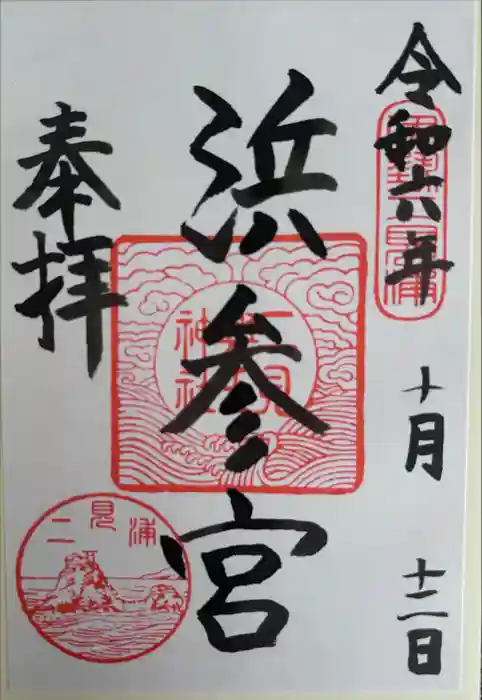 令和六年
十月
十二日
浜参宮
奉拝
二見
神社
二見浦